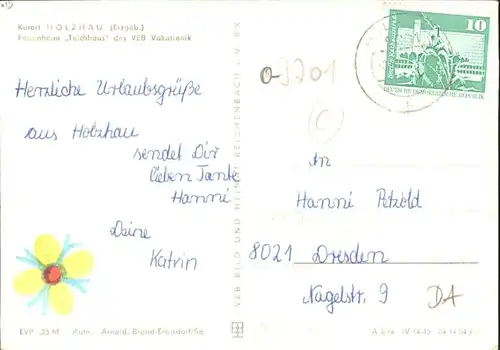 Kurort HOLZHAU (Erzgeb.)
Ferienheim „Teichhaus" des VEB Vakutronik
Herzliche Urlaubsgrüße
aus Holzhau
sendet Dir
lieben Tante
Hanni
Deine
Katrin
EVP -,25 M Aufn.: Arnold, Brand-Erbisdorf/Sa.
VEB BILD UND HEIMAT REICHENBACH i. V.
0-3201
C
10
DEUTSCHE DEMOKRATISCHE REPUBLIK
An
Hanni Petzold
8021 Dresden
Nagelstr. 9
DA